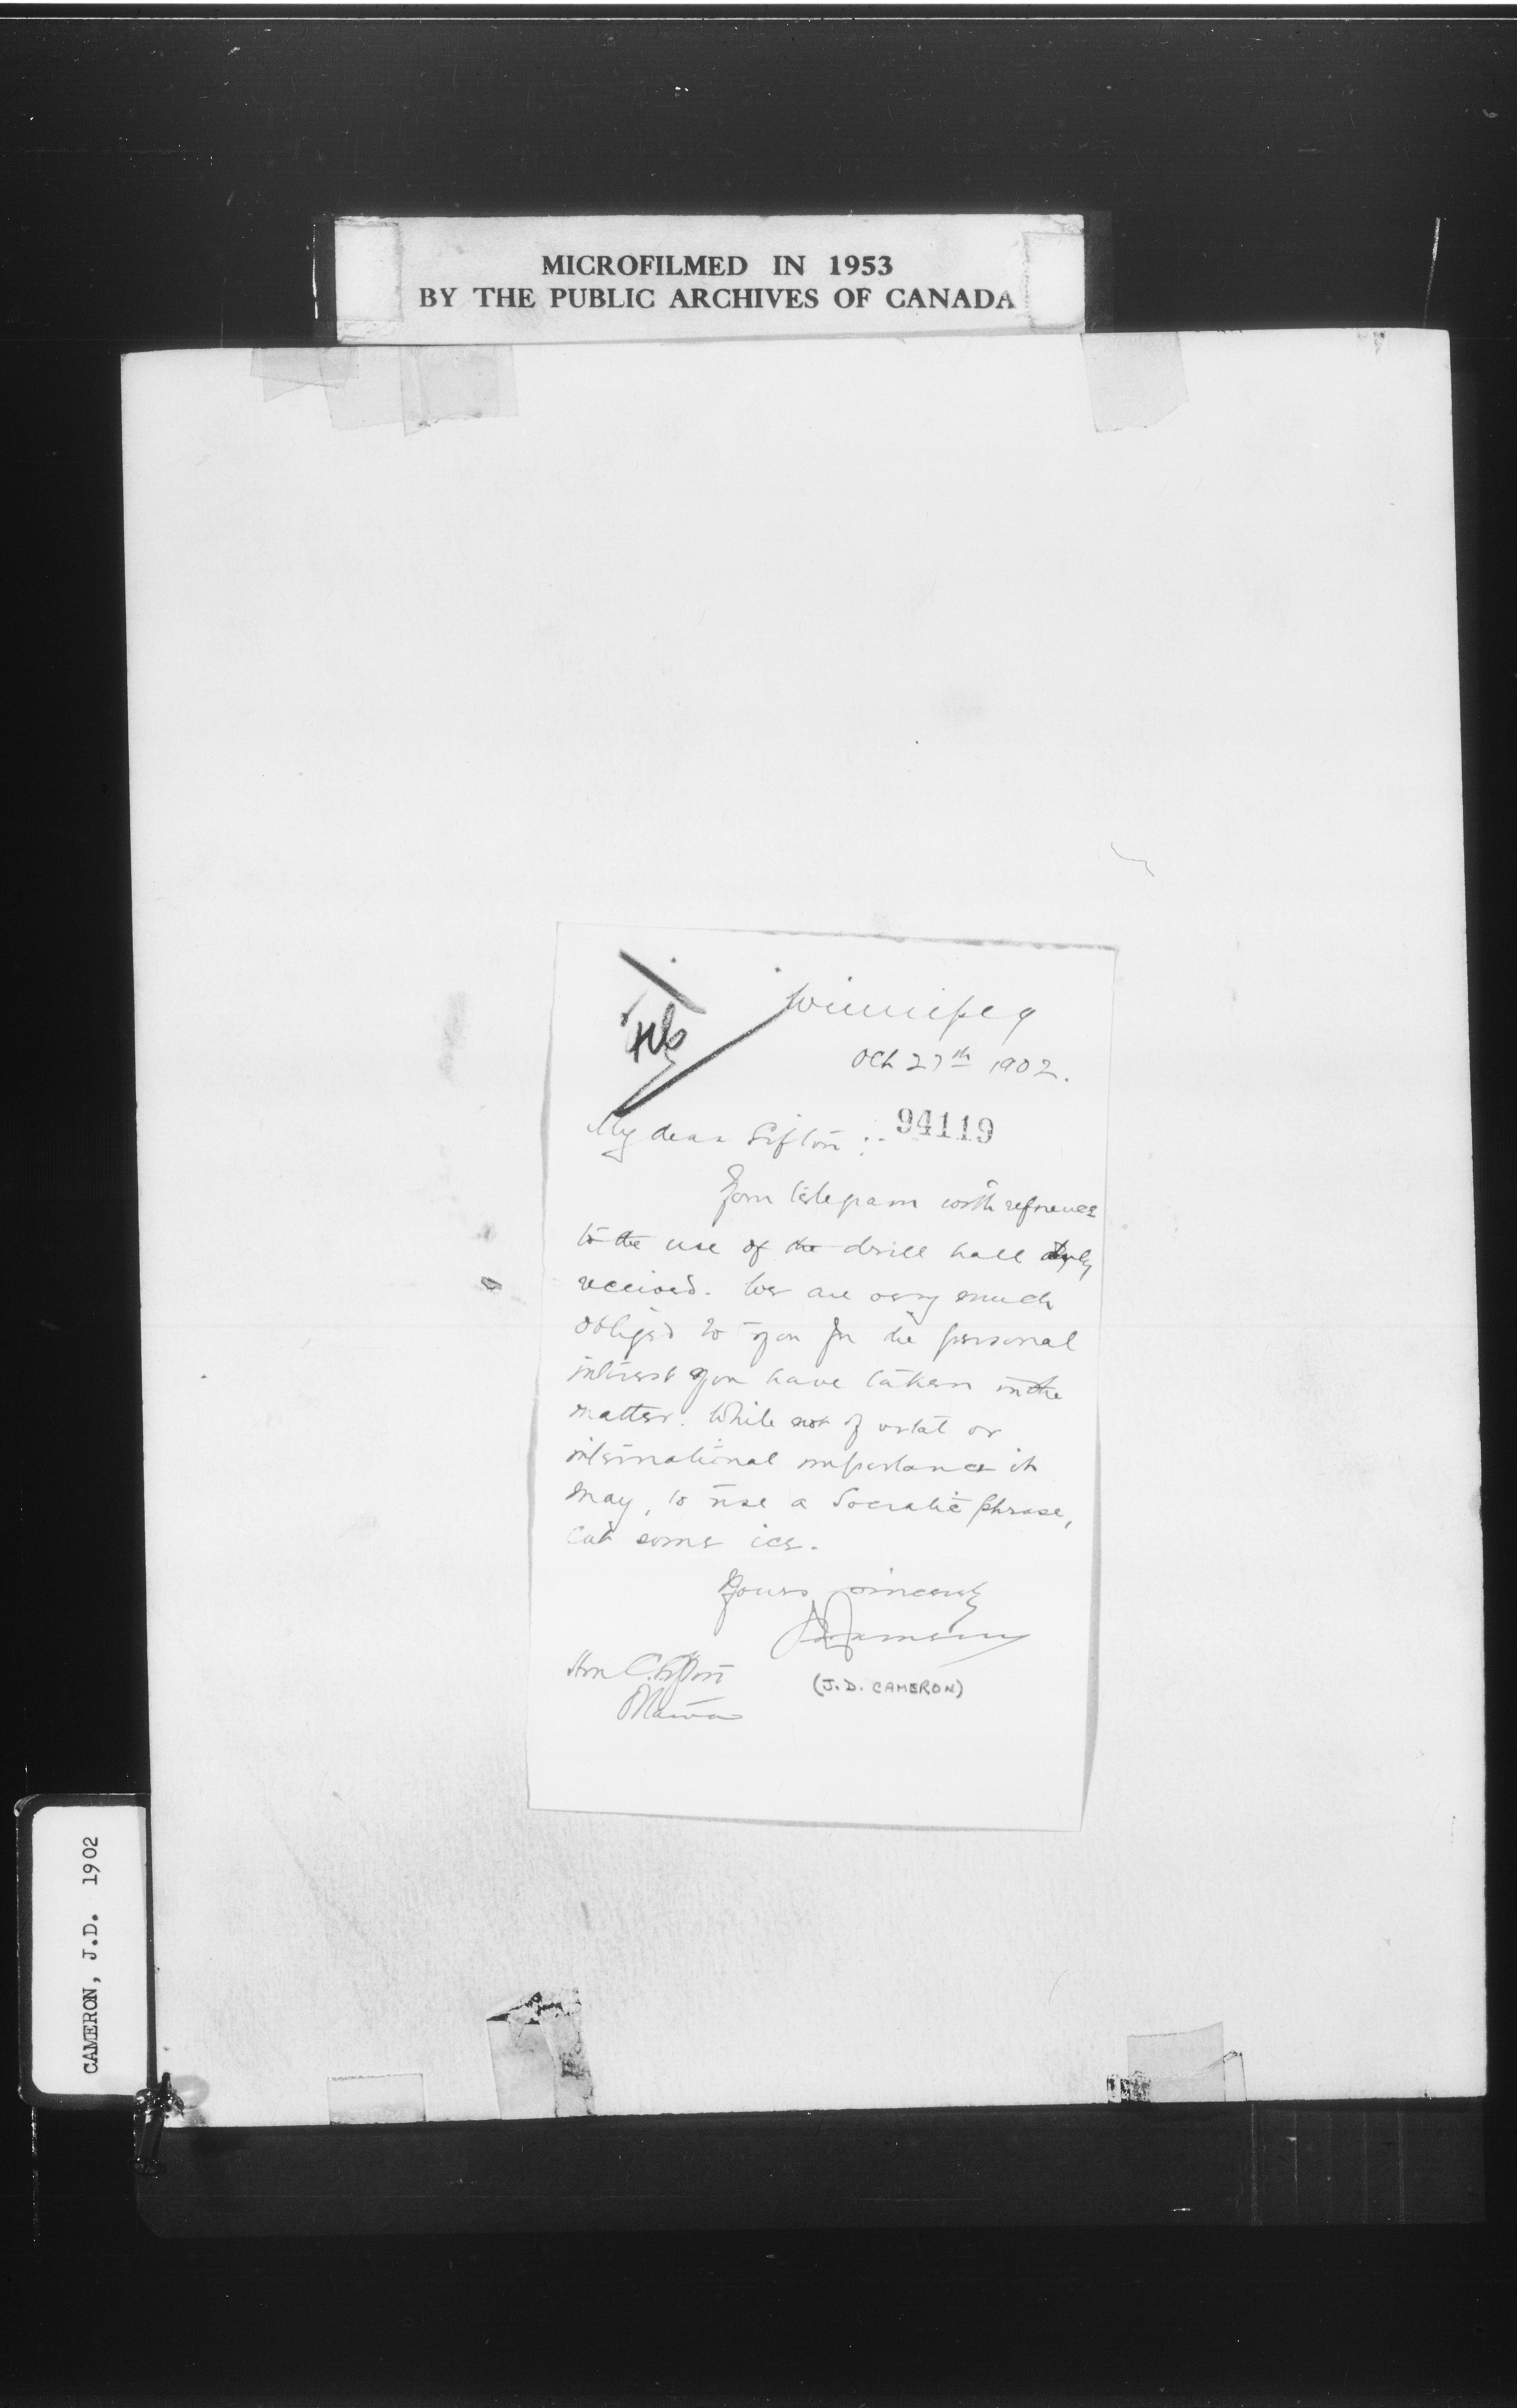 MICROFILMED IN 1953
BY THE PUBLIC ARCHIVES OF CANADA
Winnipeg
Oct 27th 1902.
My dear Sifton :-
94119
Your telegram with reference
to the use of the drill hall duly
received. We are very much
obliged to you for the personal
interest you have taken in the
matter. While not of vital or
international importance it
may, to use a Socratic phrase,
cut some ice.
Yours sincerely
JDCameron
(J.D. CAMERON)
Hon C. Sifton
Ottawa
CAMERON, J.D. 1902